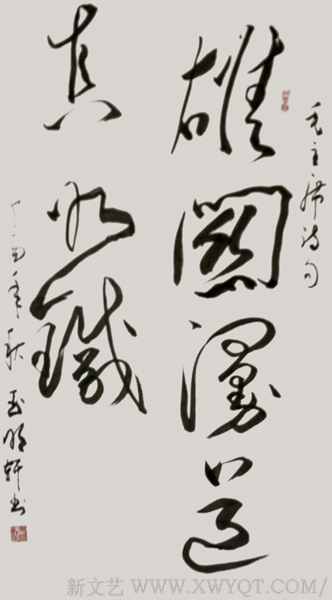 毛主席诗句
雄關漫道
真如鐵
丁酉年秋 明轩书
新文艺 WWW.XWYQT.COM/